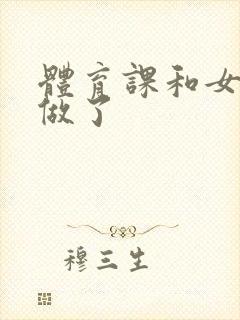 體育課和女
做了
穆三生